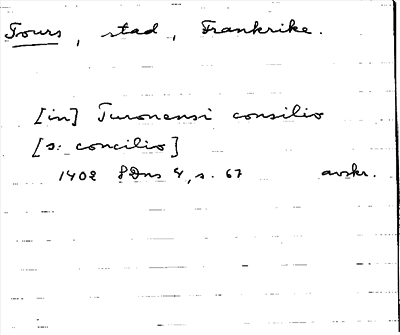 Tours, stad, Frankrike.
[in] Turonensi consilio
[s: concilio]
1402 SDns 4, s. 67 avskr.